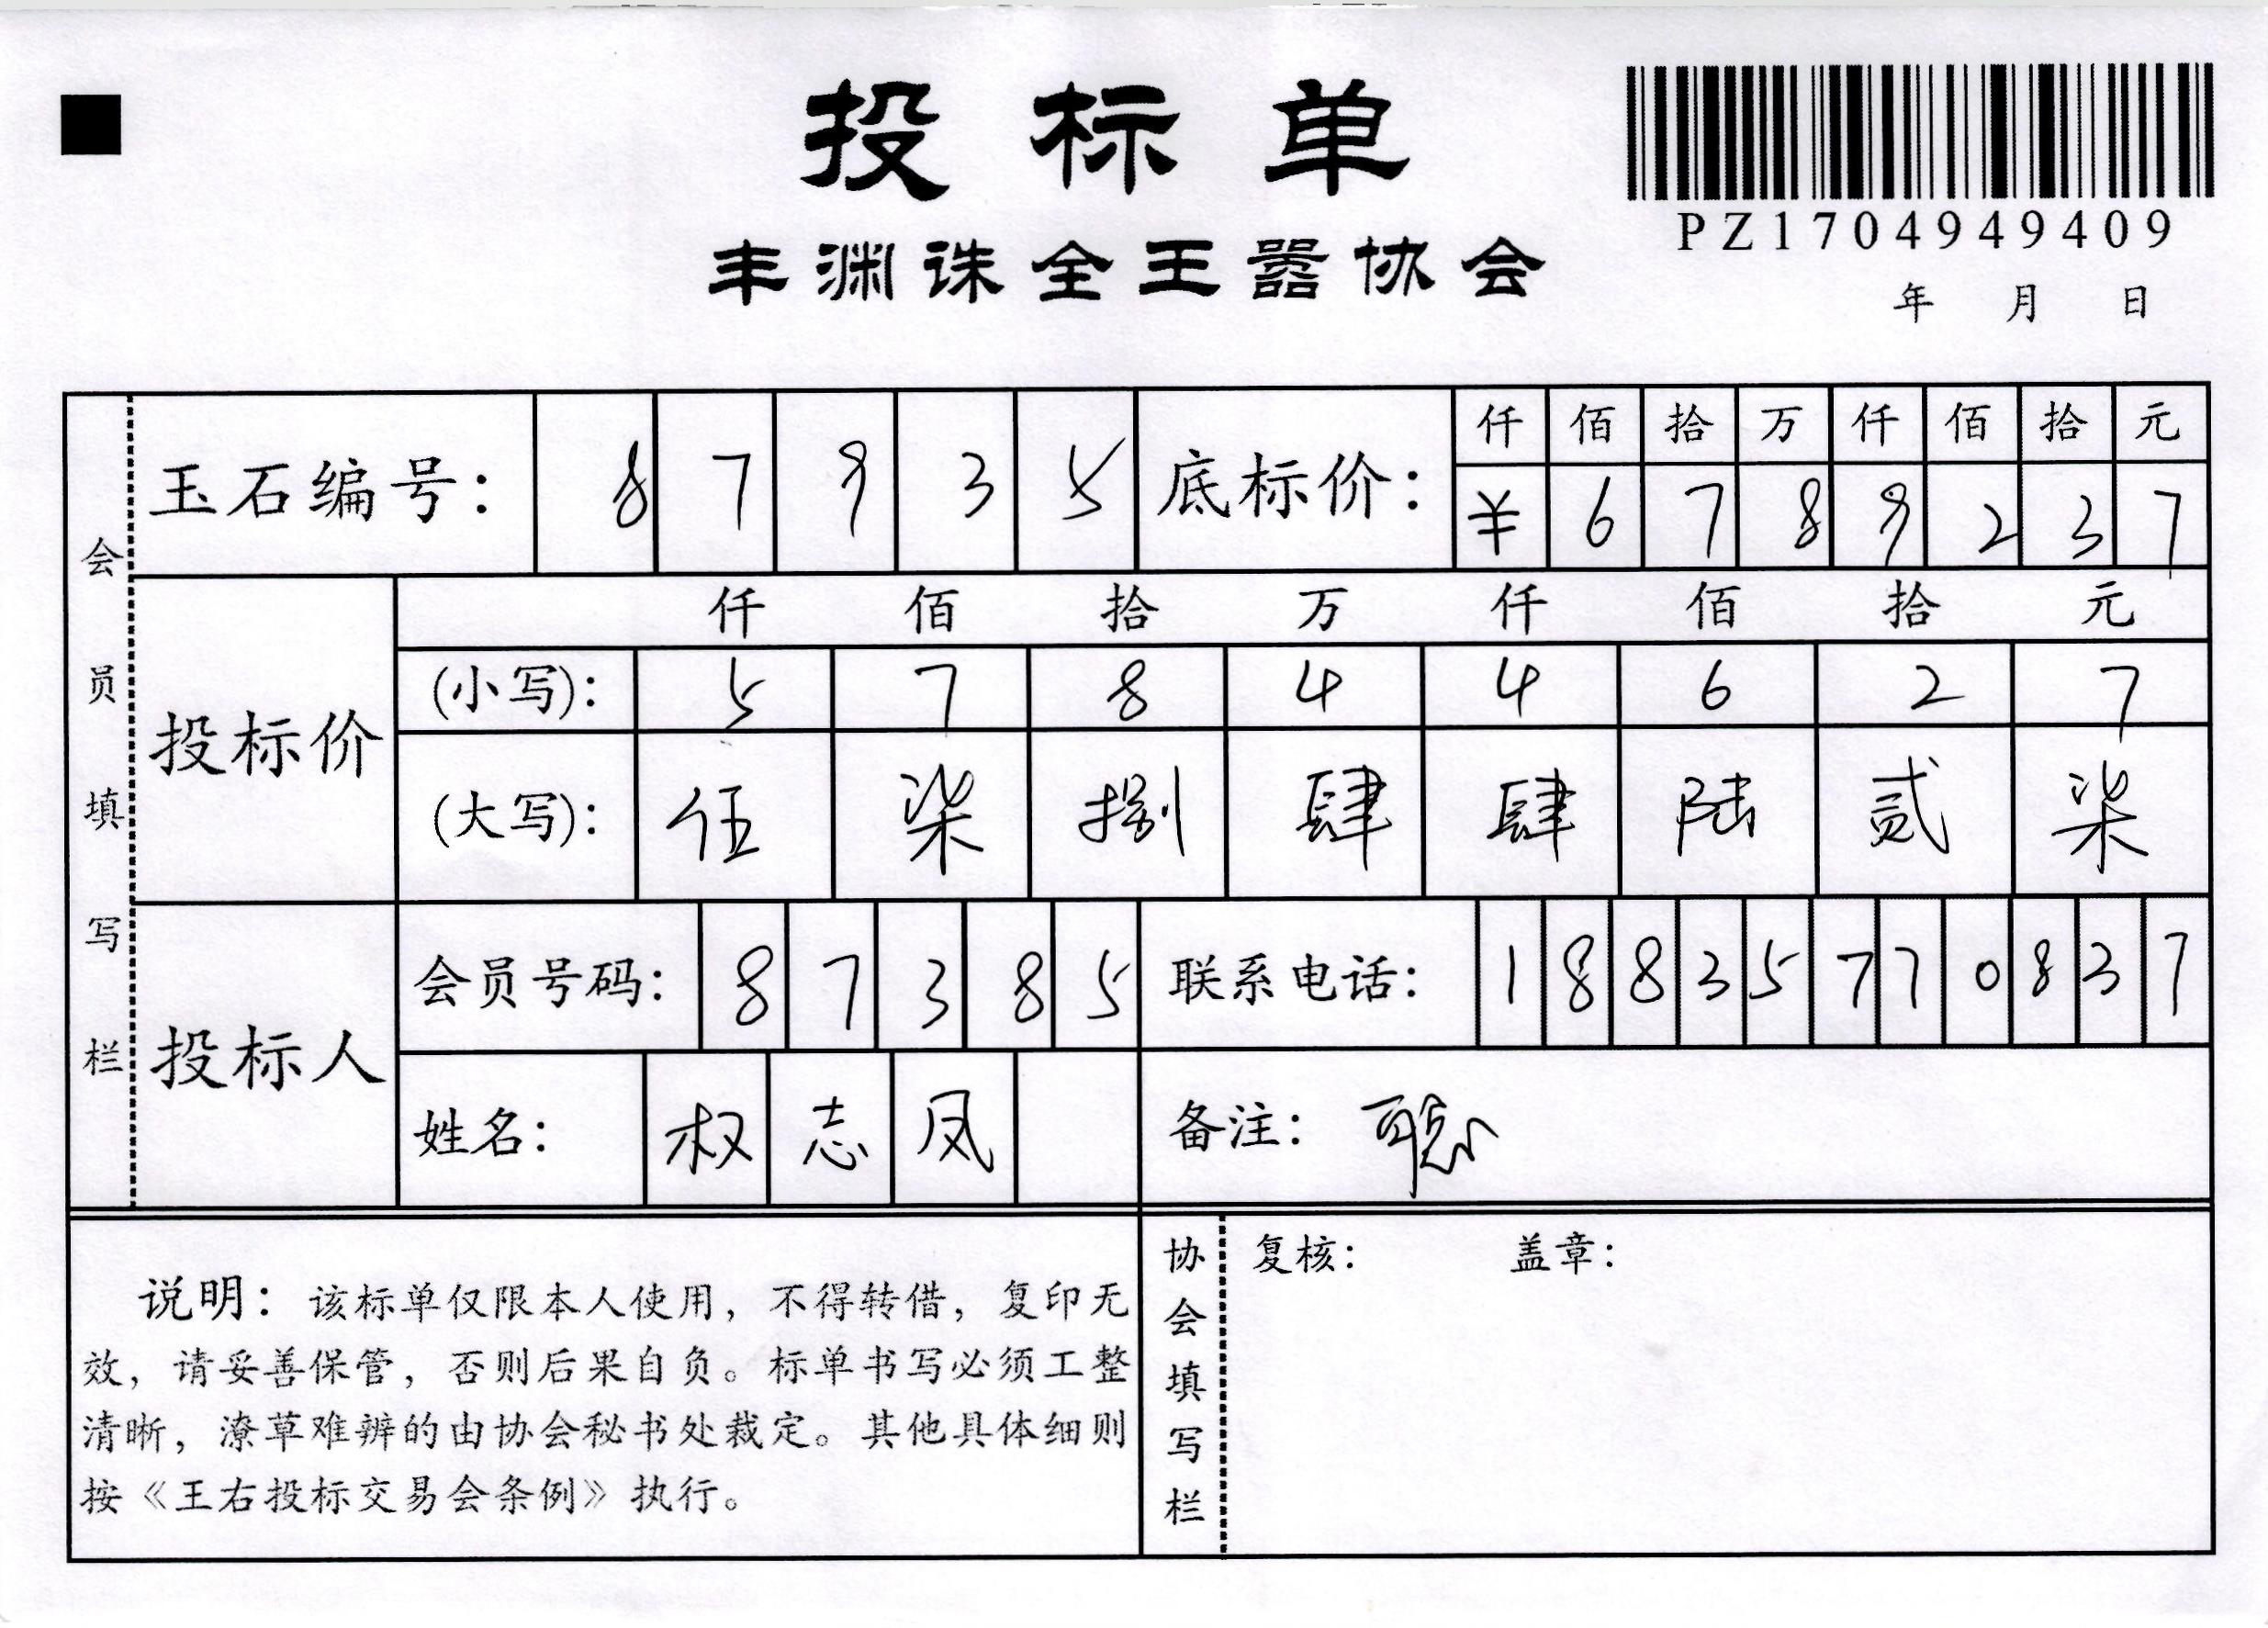 投标单
丰渊诛全王嚣协会
PZ1704949409
年 月 日
会员填写栏
玉石编号： 8 7 9 3 5
底标价： 仟 佰 拾 万 仟 佰 拾 元
¥ 6 7 8 9 2 3 7
投标价
仟 佰 拾 万 仟 佰 拾 元
(小写)： 5 7 8 4 4 6 2 7
(大写)： 伍 柒 捌 肆 肆 陆 贰 柒
投标人
会员号码： 8 7 3 8 5
联系电话： 1 8 8 3 5 7 7 0 8 3 7
姓名： 权 志 凤
备注： 聪
说明：该标单仅限本人使用，不得转借，复印无
效，请妥善保管，否则后果自负。标单书写必须工整
清晰，潦草难辨的由协会秘书处裁定。其他具体细则
按《王右投标交易会条例》执行。
协会填写栏
复核： 盖章：